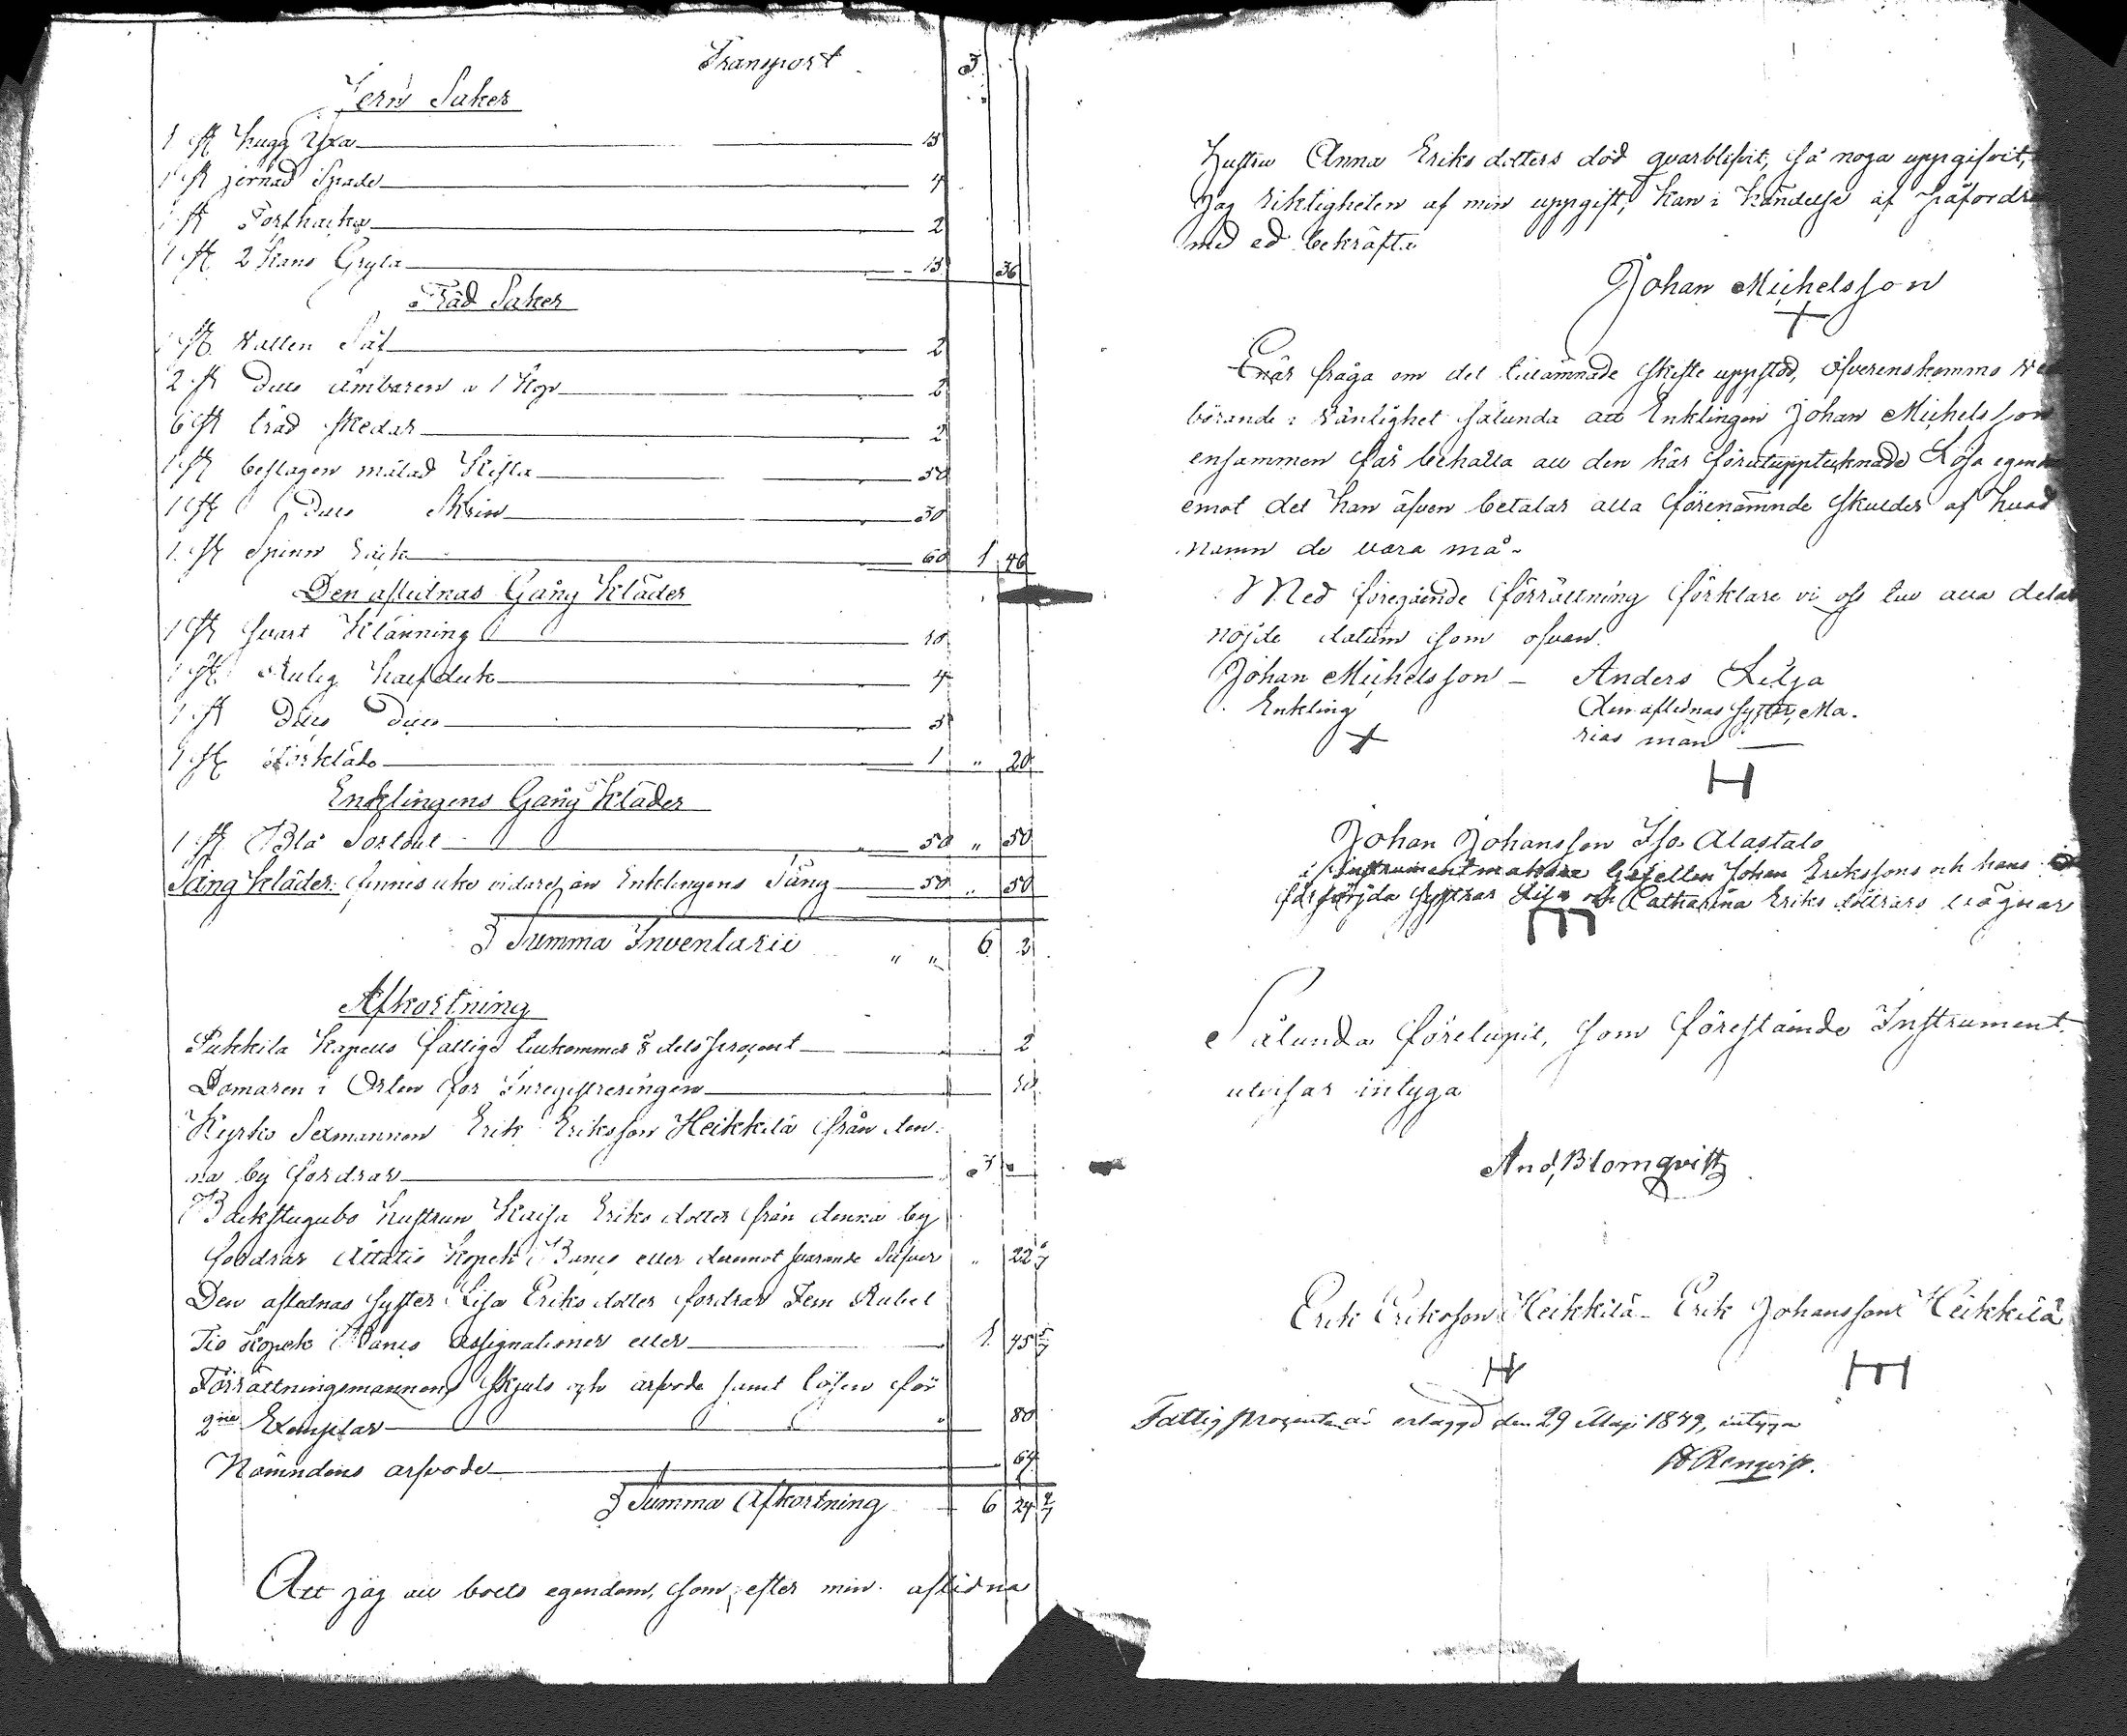 Transport 3
Jern Saker
1 st hugg Yxa 15
1 st jernad Spade 4
1 st Torfhacka 2
1 st 2 Kans Gryta 15 36
Träd Saker
1 st Vatten Såt 2
2 st Ditto ämbaren o 1 Kop 2
6 st träd skedar 2
1 st beslagen målad Kista 50
1 st Ditto Skrin 30
1 st Spinn Råck 60 1 46
Den aflidnas Gång Kläder
1 st svart Klänning 10
1 st Rutig halsduk 4
1 st Ditto Ditto 5
1 st Förkläde 1 " 20
Enklingens Gång Kläder
1 st Blå Sortout 50 " 50
Säng Kläder finnes icke vidare än Enklingens Säng 50 " 50
Summa Inventarii " " 6 2
Afkortning
Pukkila Kapells fattige tillkommer 1/8 dels procent 2
Domaren i Orten för Inregistreringen 10
Kyrko Sexmannen Erik Eriksson Heikkilä från den-
na by fordrar 3 "
Backstugubo hustrun Kaisa Eriks dotter från denna by
fordrar Åttatio Kopek Banco eller deremot svarande Silfver " 22 6/7
Den aflednas syster Lisa Eriks dotter fordrar Fem Rubel
Tio Kopek Banco Assignationer eller 1 45 5/7
Förrättningsmannens skjuts och arfvode samt lösen för
2ne Exemplar 80
Nämndens arfvode 64
Summa Afkortning 6 24 4/7
Att jag all boets egendom, som efter min aflidna
Hustru Anna Eriks dotters död qvarblifvit, så noga uppgifvit,
jag riktigheten af min uppgift, kan i händelse af påfordra
med ed bekräfta
Johan Michelsson
Enär fråga om det tillämnade skifte uppstod, öfverenskommo
börande i vänlighet sålunda att Enklingen Johan Michelsson
ensammen får behålla all den här förut upptecknade Lösa egen
emot det han äfven betalar alla förenämnde skulder af hvad
namn de vara må.
Med föregående förrättning förklare vi oss till alla delar
nöjde datum som ofvan
Johan Michelsson – Anders Lilja
Enkling den aflidnas syster, Ma-
rias man
Johan Johansson Iso Alastalo
i Instrumentmakare Gesellen Johan Erikssons och hans
förföljda systrar Lisa och Catharina Eriks döttrars vägnar
Sålunda förelupit, som föreståënde Instrument
utvisar intyga
And, Blomqvist
Erik Eriksson Heikkilä – Erik Johansson Heikkilä
Fattigprocenten är erlaggd den 29 Maji 1849, intygar
Renqvist.